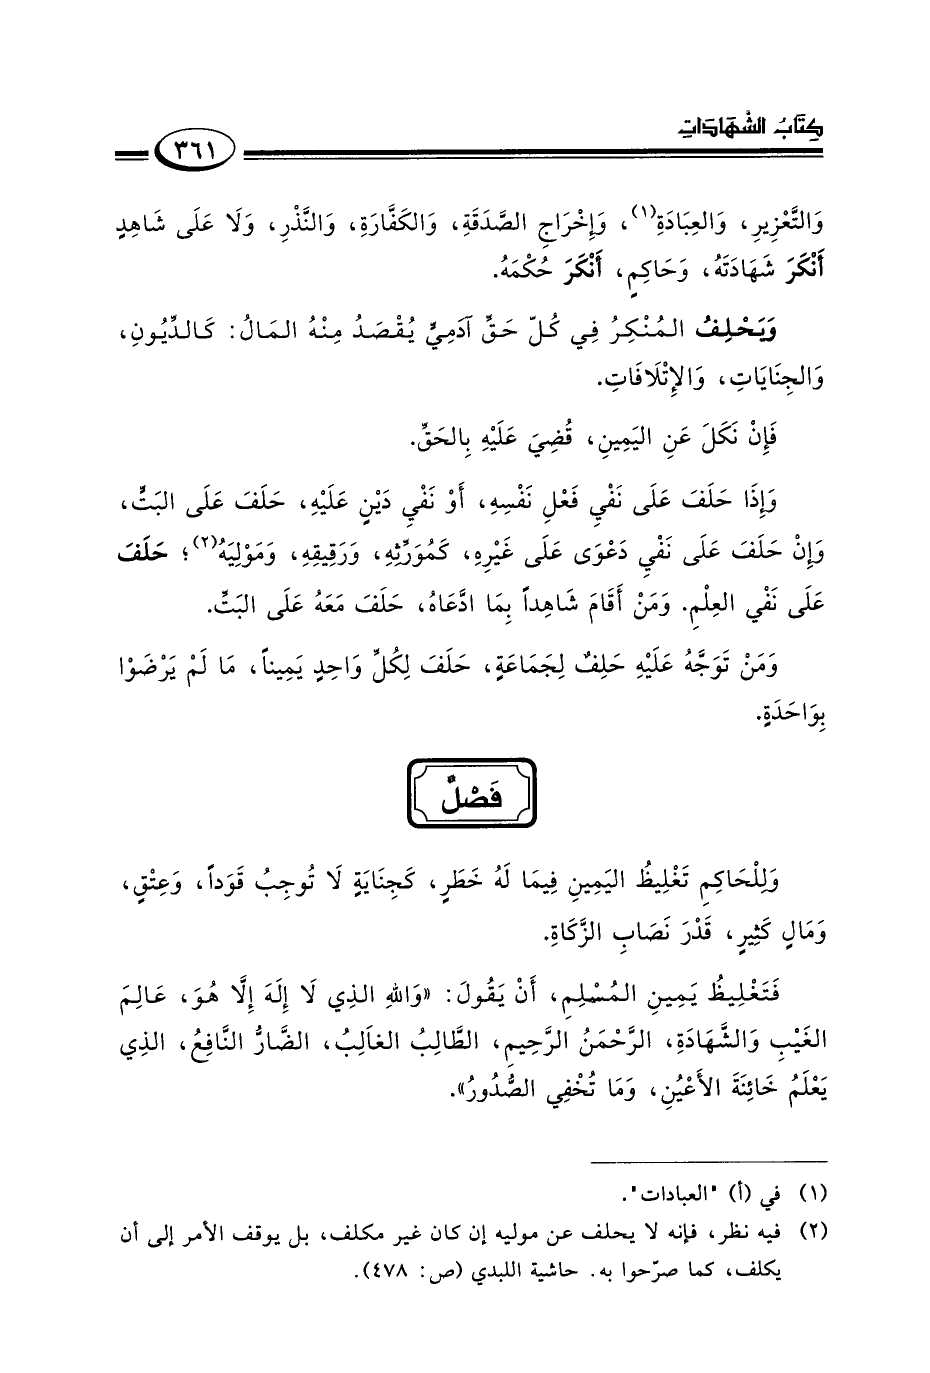 كِتَابُ الشَّهَادَاتِ
٣٦١
وَالتَّعْزِيرِ، وَالعِبَادَةِ(١)، وَإِخْرَاجِ الصَّدَقَةِ، وَالكَفَّارَةِ، وَالنَّذْرِ، وَلَا عَلَى شَاهِدٍ
أَنْكَرَ شَهَادَتَهُ، وَحَاكِمٍ، أَنْكَرَ حُكْمَهُ.
وَيَحْلِفُ المُنْكِرُ فِي كُلّ حَقِّ آدَمِيٍّ يُقْصَدُ مِنْهُ المَالُ: كَالدِّيُونِ،
وَالجِنَايَاتِ، وَالإِتْلَافَاتِ.
فَإِنْ نَكَلَ عَنِ اليَمِينِ، قُضِيَ عَلَيْهِ بِالحَقِّ.
وَإِذَا حَلَفَ عَلَى نَفْيِ فَعْلِ نَفْسِهِ، أَوْ نَفْيِ دَيْنٍ عَلَيْهِ، حَلَفَ عَلَى البَتِّ،
وَإِنْ حَلَفَ عَلَى نَفْيِ دَعْوَى عَلَى غَيْرِهِ، كَمُوَرِّثِهِ، وَرَقِيقِهِ، وَمَوْلِيَهُ(٢)؛ حَلَفَ
عَلَى نَفْي العِلْمِ. وَمَنْ أَقَامَ شَاهِداً بِمَا ادَّعَاهُ، حَلَفَ مَعَهُ عَلَى البَتِّ.
وَمَنْ تَوَجَّهُ عَلَيْهِ حَلِفٌ لِجَمَاعَةٍ، حَلَفَ لِكُلِّ وَاحِدٍ يَمِيناً، مَا لَمْ يَرْضَوْا
بِوَاحَدَةٍ.
فَصْلٌ
وَلِلْحَاكِمِ تَغْلِيظُ اليَمِينِ فِيمَا لَهُ خَطَرٍ، كَجِنَايَةٍ لَا تُوجِبُ قَوَداً، وَعِتْقٍ،
وَمَالٍ كَثِيرٍ، قَدْرَ نَصَابِ الزَّكَاةِ.
فَتَغْلِيظُ يَمِينِ المُسْلِمِ، أَنْ يَقُولَ: «وَاللهِ الذِي لَا إِلَهَ إِلَّا هُوَ، عَالِمَ
الغَيْبِ وَالشَّهَادَةِ، الرَّحْمَنُ الرَّحِيمِ، الطَّالِبُ الغَالِبُ، الضَّارُّ النَّافِعُ، الذِي
يَعْلَمُ خَائِنَةَ الأَعْيُنِ، وَمَا تُخْفِي الصُّدُورُ».
(١) في (أ) "العبادات".
(٢) فيه نظر، فإنه لا يحلف عن موليه إن كان غير مكلف، بل يوقف الأمر إلى أن
يكلف، كما صرّحوا به. حاشية اللبدي (ص: ٤٧٨).